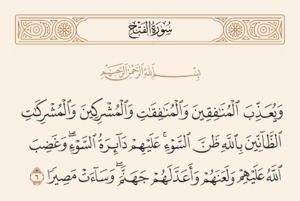 سُورَةُ الفَتْحِ
بِسْمِ اللَّهِ الرَّحْمَٰنِ الرَّحِيمِ
وَيُعَذِّبَ الْمُنَافِقِينَ وَالْمُنَافِقَاتِ وَالْمُشْرِكِينَ وَالْمُشْرِكَاتِ
الظَّانِّينَ بِاللَّهِ ظَنَّ السَّوْءِ ۚ عَلَيْهِمْ دَائِرَةُ السَّوْءِ ۖ وَغَضِبَ
اللَّهُ عَلَيْهِمْ وَلَعَنَهُمْ وَأَعَدَّ لَهُمْ جَهَنَّمَ ۖ وَسَاءَتْ مَصِيرًا ٦